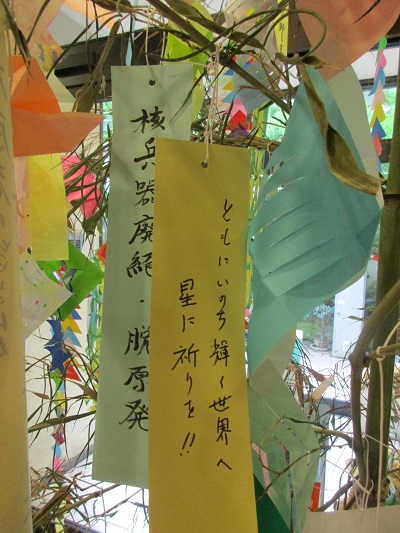 ともにいのち輝く世界へ
星に祈りを!!
核兵器廃絶・脱原発